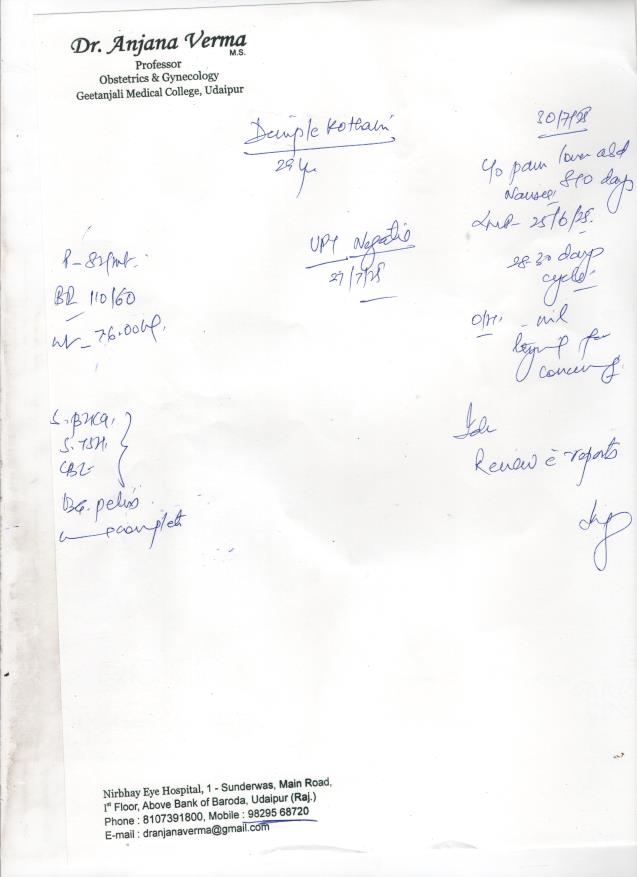 Dr. Anjana Verma
M.S.
Professor
Obstetrics & Gynecology
Geetanjali Medical College, Udaipur
Dimple Kothari
29 yr
30/7/25
c/o pain lower abd
Nausea, 8-10 days
LMP- 25/6/25.
28-30 days
cycle
O/H. - nil
for
UPT Negative
27/7/25
P - 82/mt.
BP 110/60
wt - 76.00kg.
S. BHCG,
S. TSH,
CBC
USG. pelvis
Adv
Review c̄ reports
Nirbhay Eye Hospital, 1 - Sunderwas, Main Road,
1st Floor, Above Bank of Baroda, Udaipur (Raj.)
Phone : 8107391800, Mobile : 98295 68720
E-mail : dranjanaverma@gmail.com